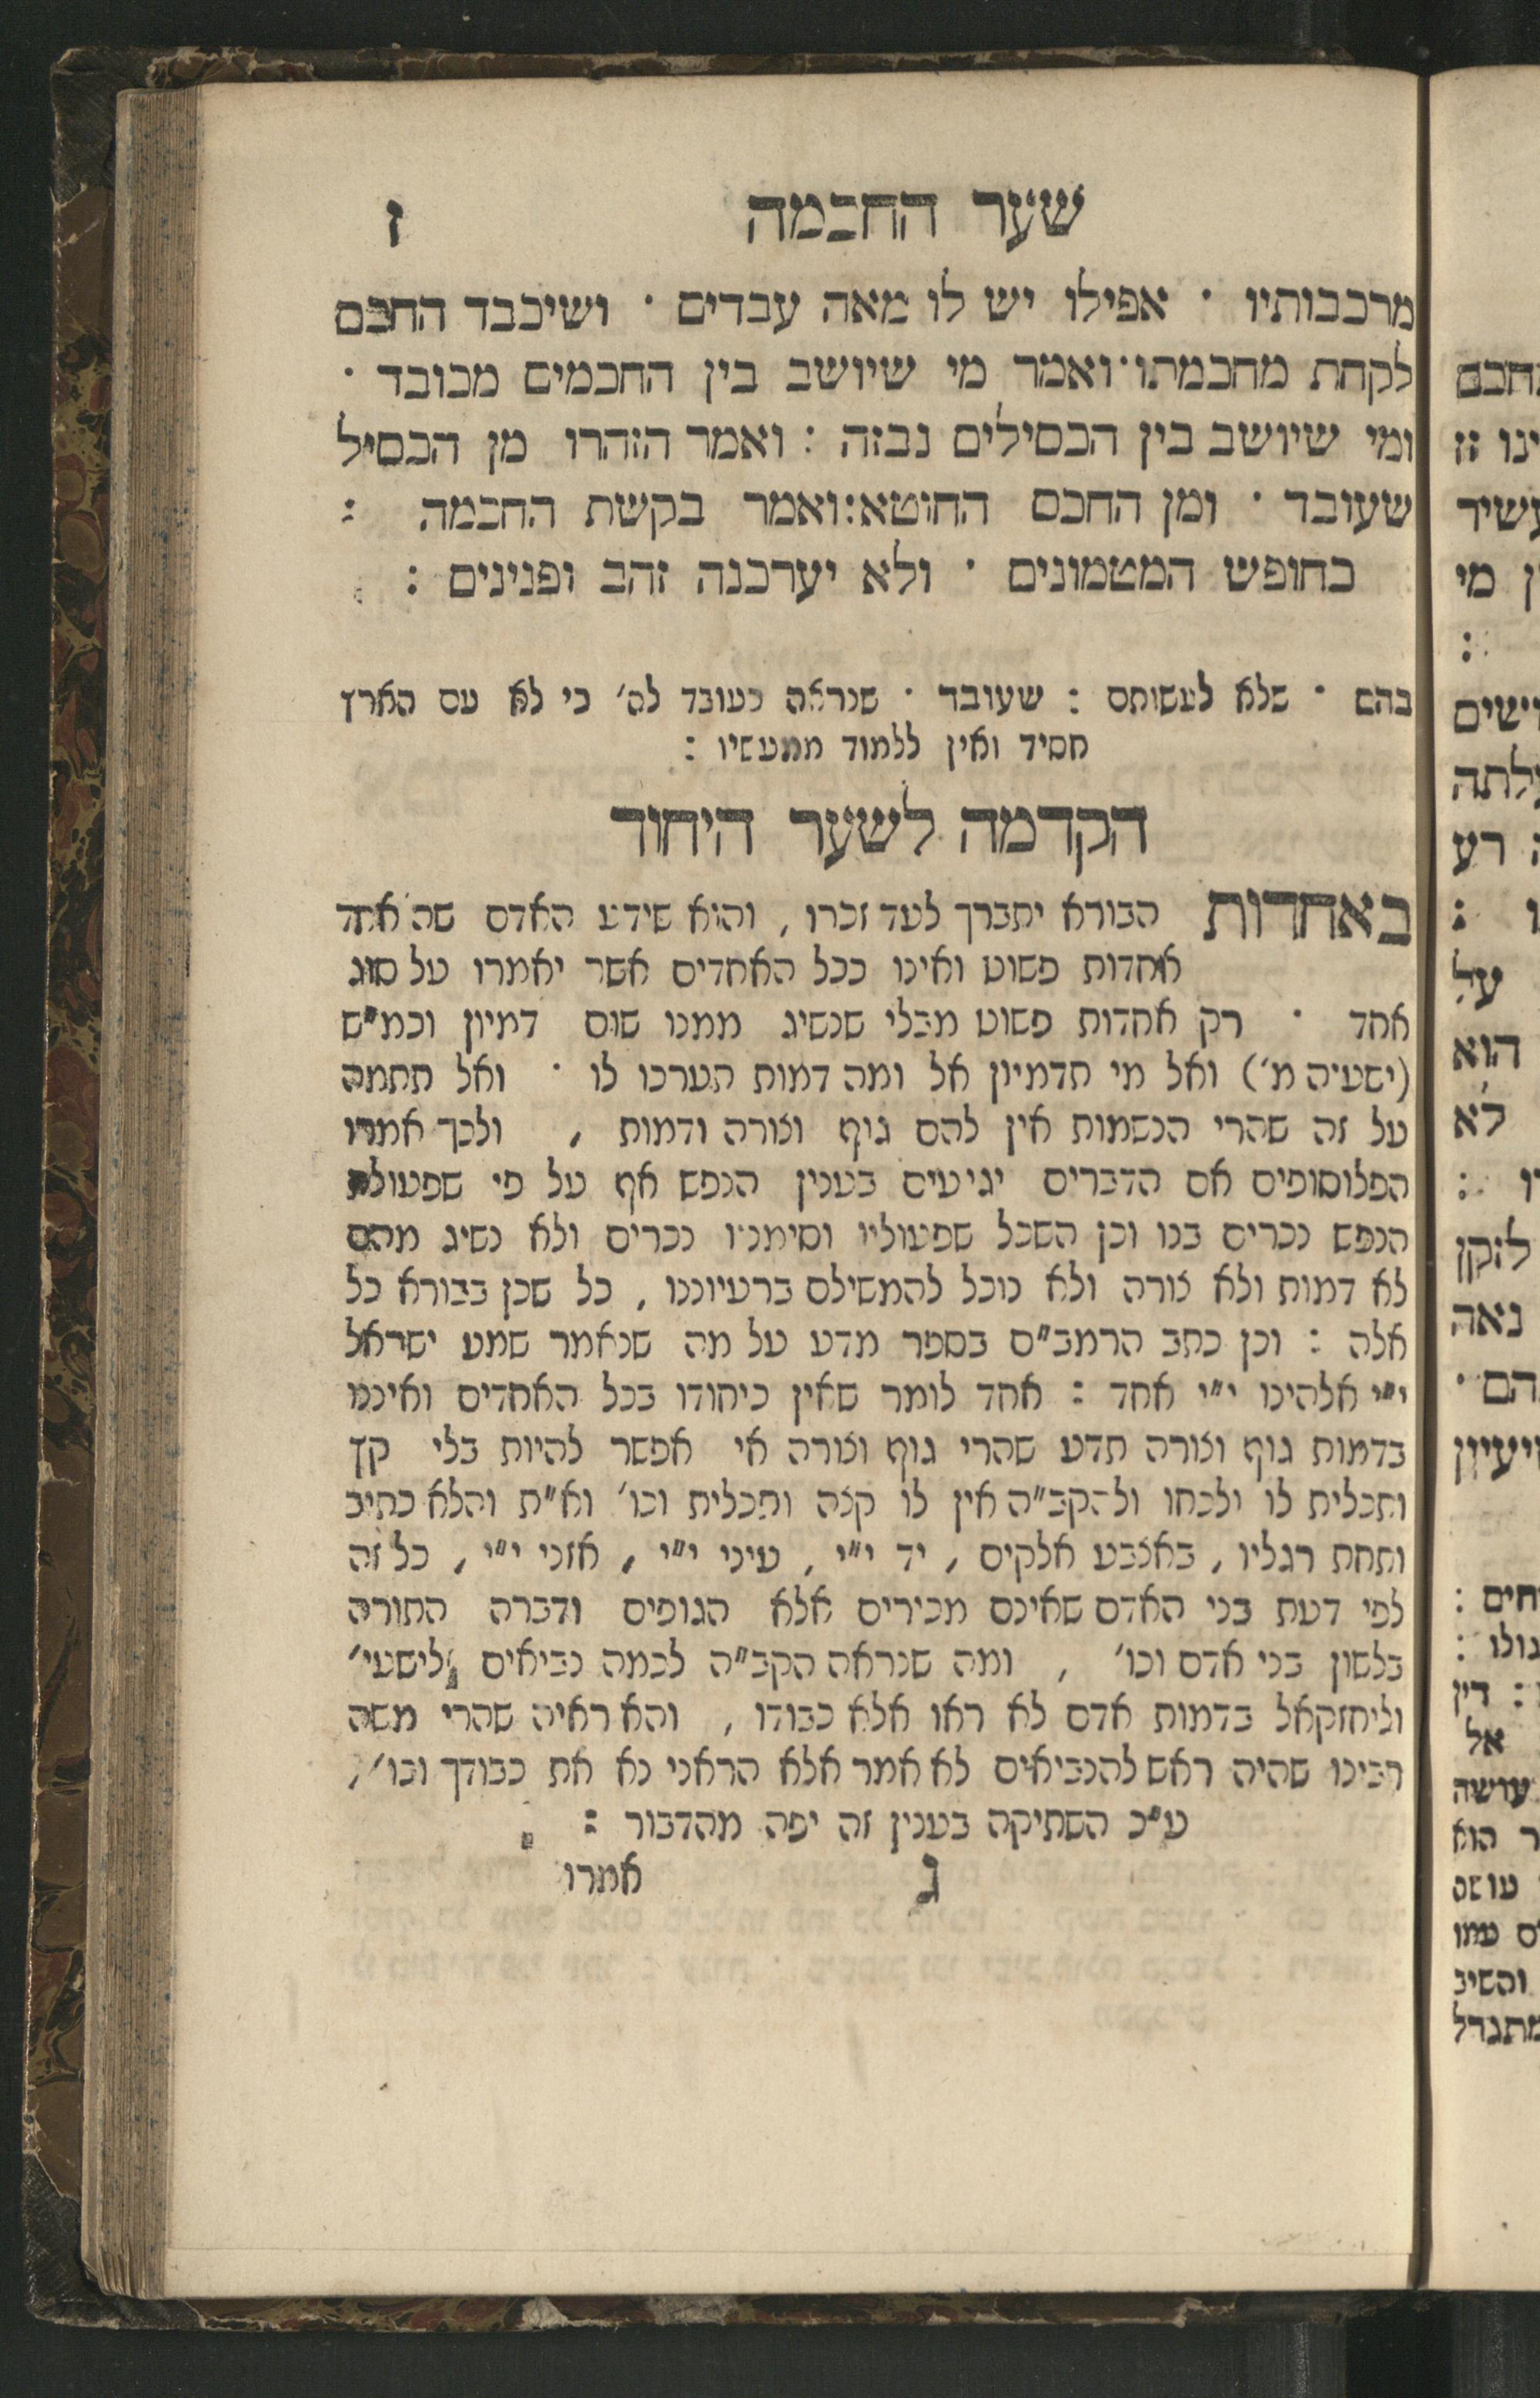 שער החכמה ז
מרכבותיו · אפילו יש לו מאה עבדים · ושיכבד החכם
לקחת מחכמתו · ואמר מי שיושב בין החכמים מכובד ·
ומי שיושב בין הכסילים נבזה : ואמר הזהרו מן הכסיל
שעובד · ומן החכם החוטא : ואמר בקשת החכמה :
כחופש המטמונים · ולא יערכנה זהב ופנינים :
בהם · שלא לעשותם : שעובד · שנראה כעובד לה׳ כי לא עם הארץ
חסיד ואין ללמוד ממעשיו :
הקדמה לשער היחוד
באחדות הבורא יתברך לעד זכרו , והוא שידע האדם שה׳ אחד
אחדות פשוט ואינו ככל האחדים אשר יאמרו על סוג
אחד · רק אחדות פשוט מבלי שנשיג ממנו שום דמיון וכמ״ש
(ישעיה מ׳) ואל מי תדמיון אל ומה דמות תערכו לו · ואל תתמה
על זה שהרי הנשמות אין להם גוף וצורה ודמות , ולכך אמרו
הפלוסופים אם הדברים יגיעים בענין הנפש אף על פי שפעולת
הנפש נכרים בנו וכן השכל שפעוליו וסימניו נכרים ולא נשיג מהם
לא דמות ולא צורה ולא נוכל להמשילם ברעיוננו , כל שכן בבורא כל
אלה : וכן כתב הרמב״ם בספר מדע על מה שנאמר שמע ישראל
י״י אלהינו י״י אחד : אחד לומר שאין כיחודו בכל האחדים ואיננו
בדמות גוף וצורה תדע שהרי גוף וצורה אי אפשר להיות בלי קץ
ותכלית לו ולכחו ולהקב״ה אין לו קצה ותכלית וכו׳ וא״ת והלא כתיב
ותחת רגליו , באצבע אלקים , יד י״י , עיני י״י , אזני י״י , כל זה
לפי דעת בני האדם שאינם מכירים אלא הגופים ודברה התורה
בלשון בני אדם וכו׳ , ומה שנראה הקב״ה לכמה נביאים לישעי׳
וליחזקאל בדמות אדם לא ראו אלא כבודו , והא ראיה שהרי משה
רבינו שהיה ראש להנביאים לא אמר אלא הראני נא את כבודך וכו׳ ,
ע״כ השתיקה בענין זה יפה מהדבור :
ג אמרו